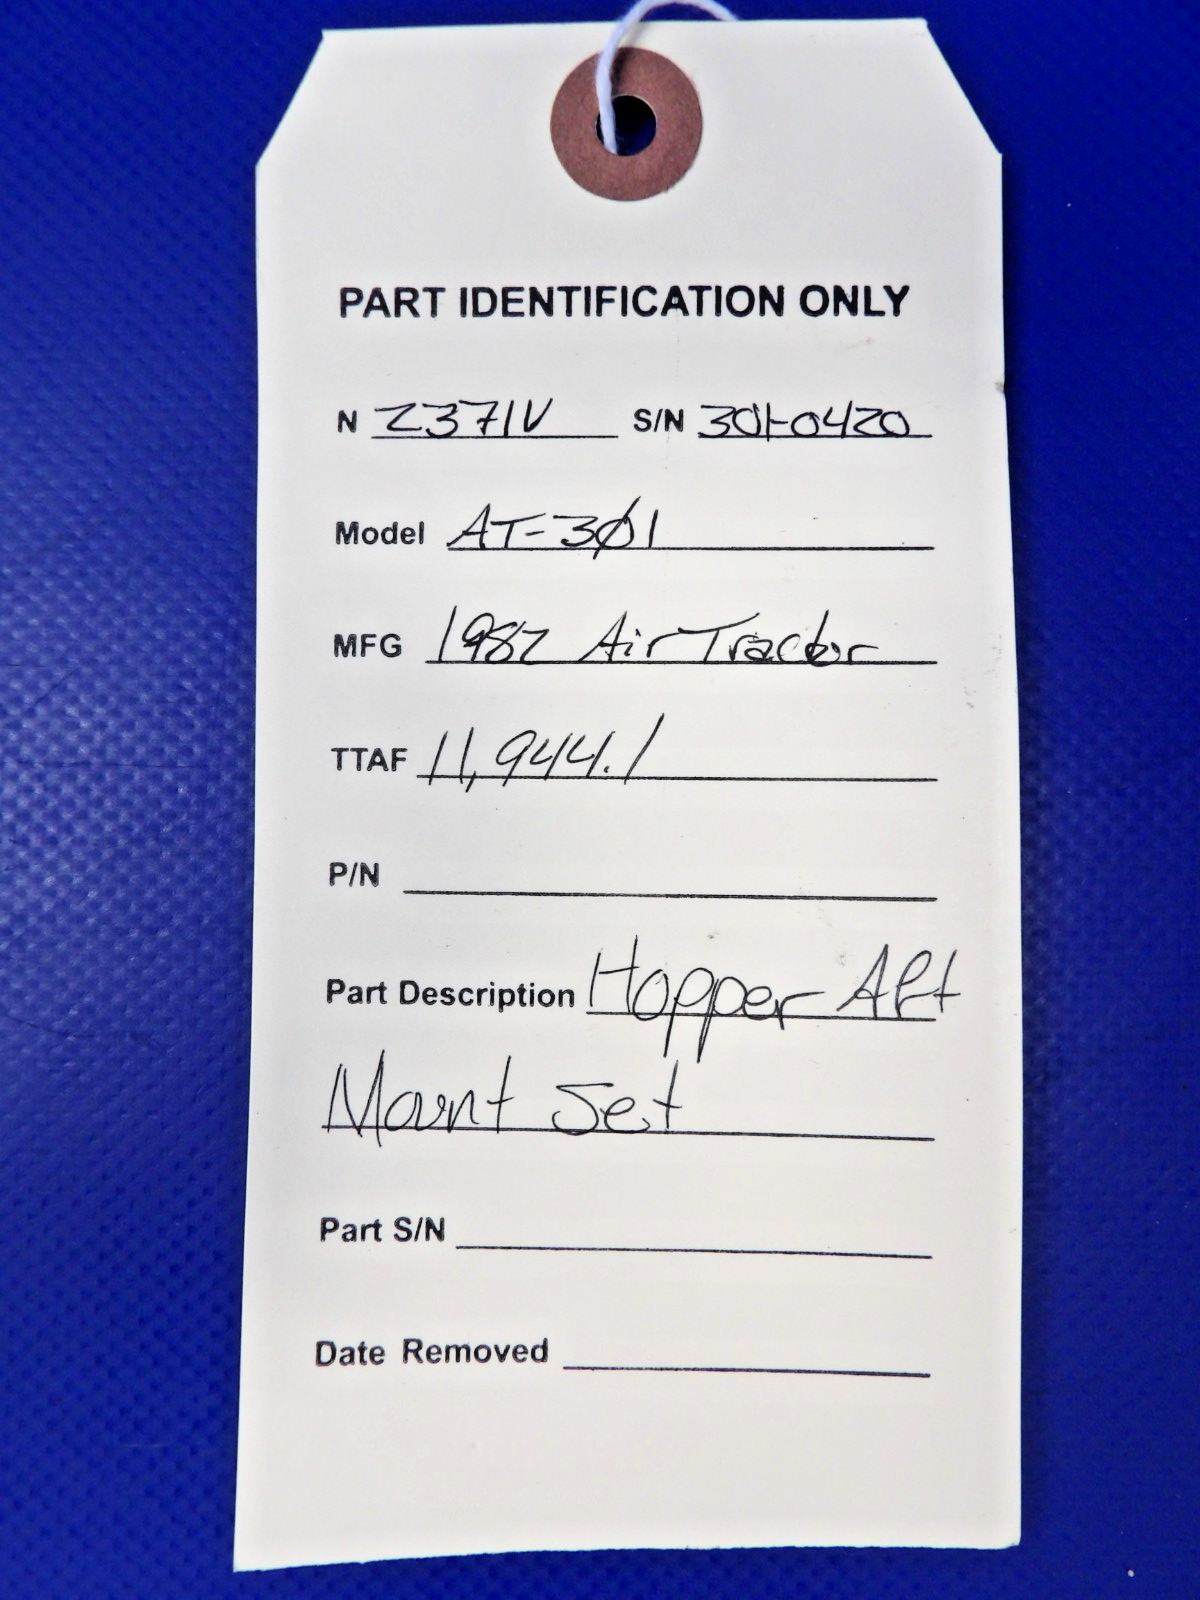 PART IDENTIFICATION ONLY
N 2371V S/N 301-0420
Model AT-301
MFG 1982 Air Tractor
TTAF 11,944.1
P/N
Part Description Hopper Aft
Mount Set
Part S/N
Date Removed